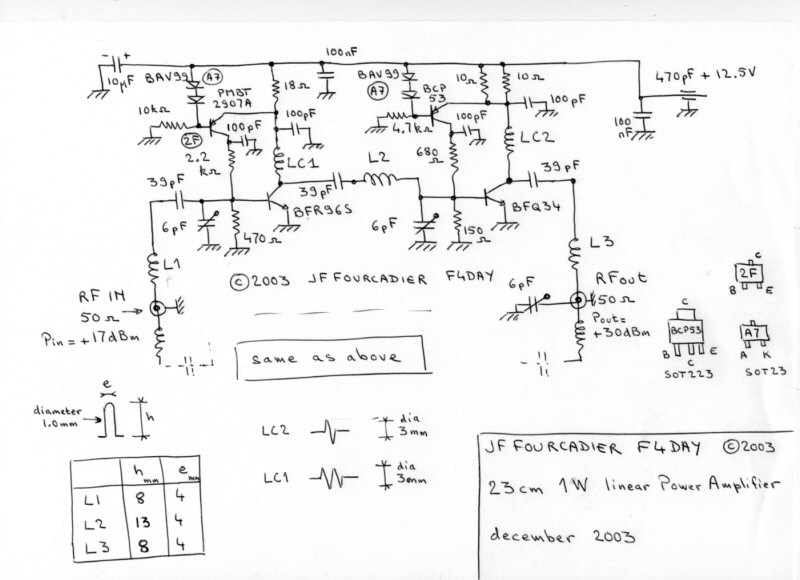 - +
10µF
BAV99
A7
PMBT
2907A
10kΩ
2F
100pF
2.2
kΩ
18Ω
100pF
LC1
100nF
BAV99
A7
BCP
53
4.7kΩ
100pF
680
Ω
10Ω
10Ω
100pF
LC2
470pF + 12.5V
100
nF
39pF
6pF
470Ω
BFR96S
39pF
L2
6pF
150
Ω
BFQ34
39pF
L1
L3
© 2003 JF FOURCADIER F4DAY
RF IN
50Ω
Pin = +17dBm
6pF
RFout
50Ω
Pout=
+30dBm
same as above
C
2F
B E
C
BCP53
B C E
SOT223
A7
A K
SOT23
e
diameter
1.0mm
h
LC2
dia
3mm
LC1
dia
3mm
h mm e mm
L1 8 4
L2 13 4
L3 8 4
JF FOURCADIER F4DAY © 2003
23cm 1W linear Power Amplifier
december 2003